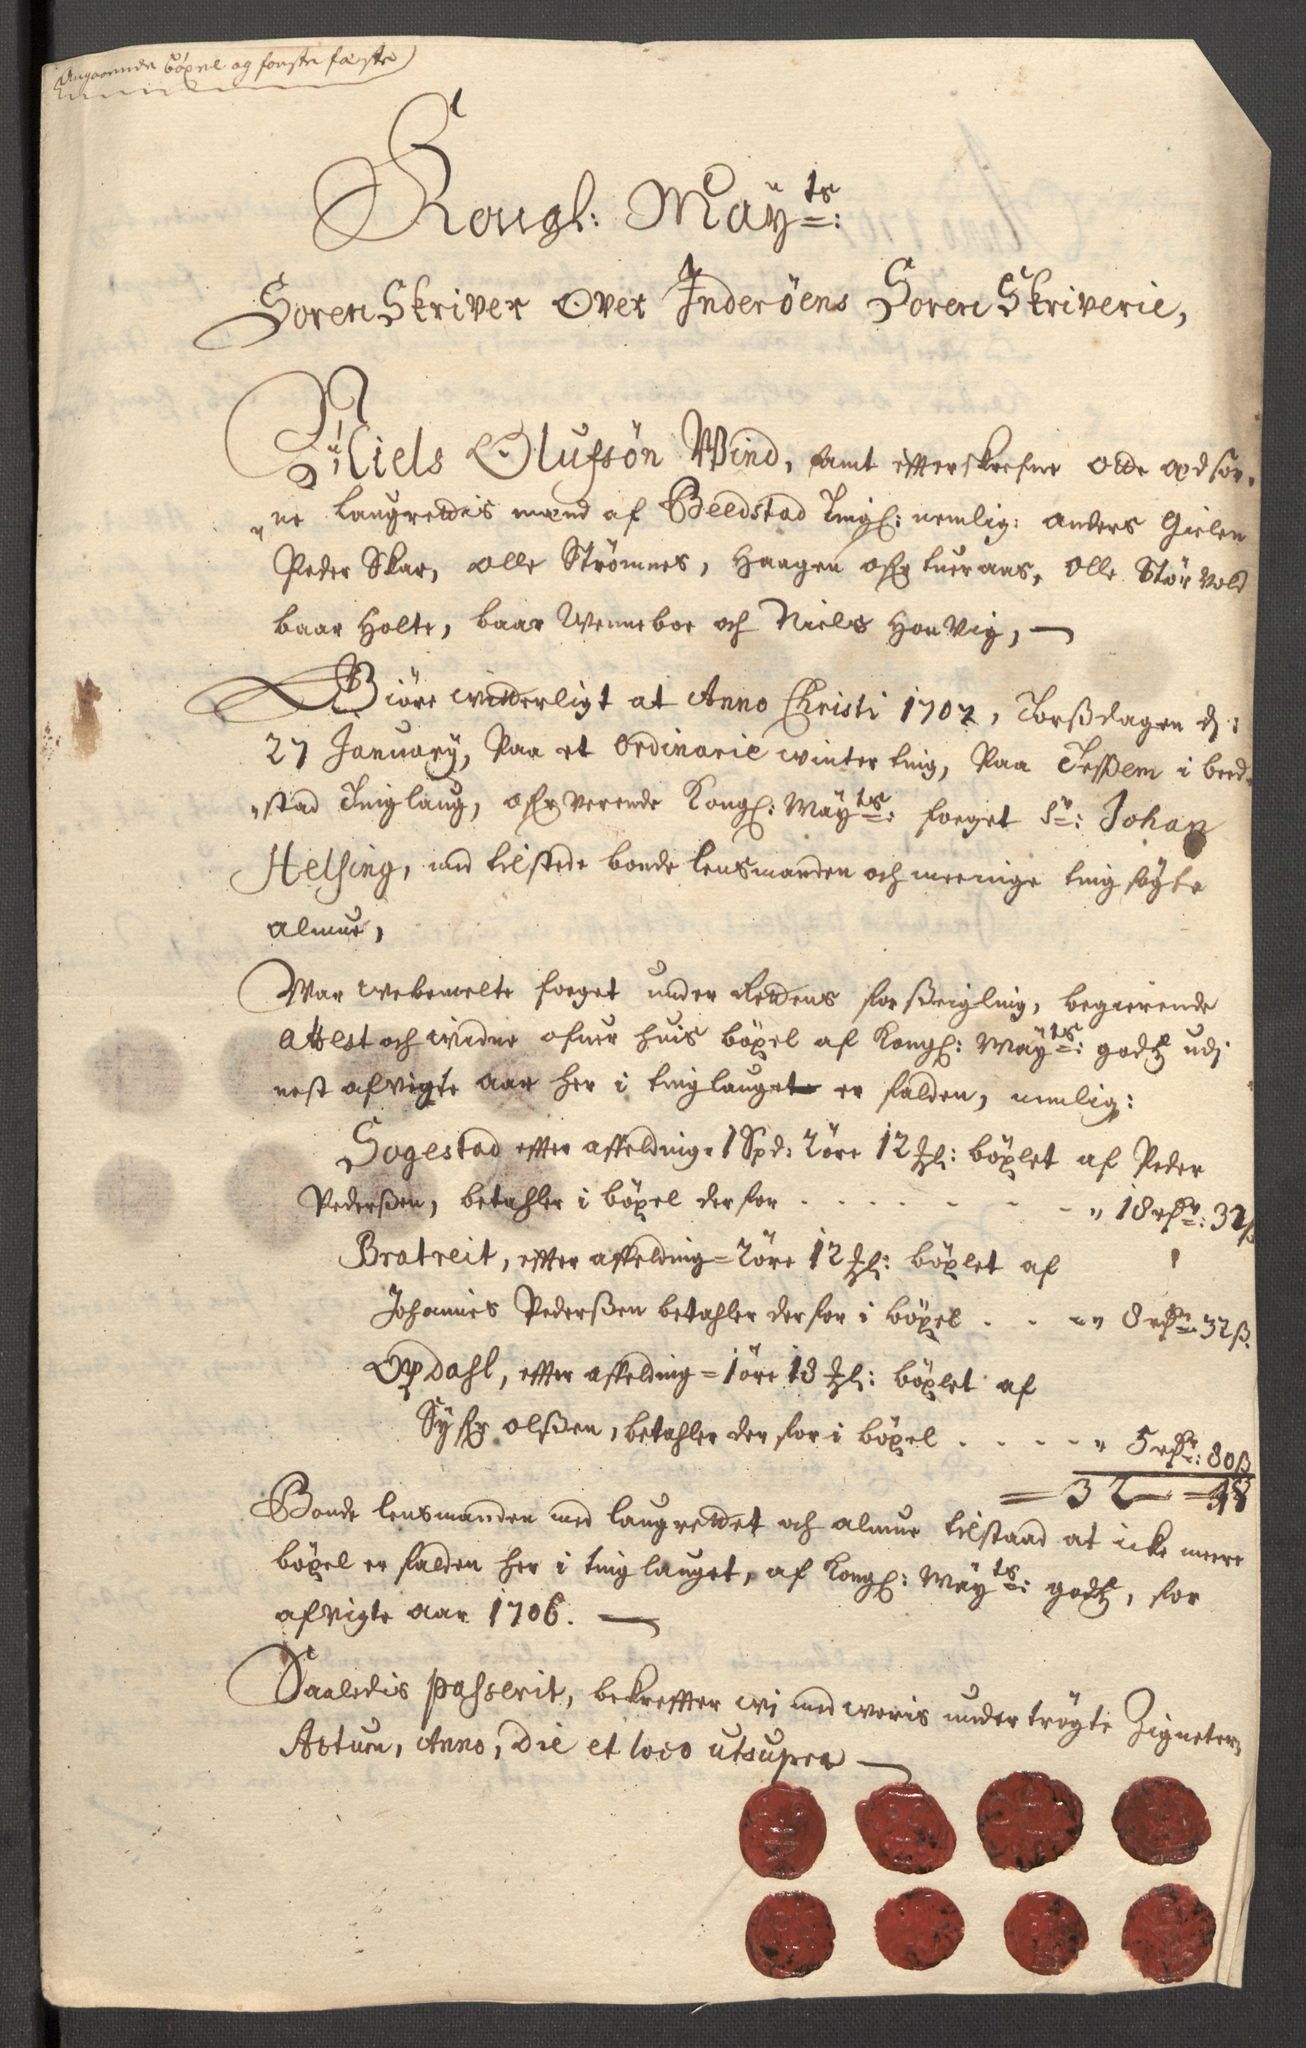 Angaaende böxel og første fæste
Kongl: Maÿts:
Soren Skriver Over Inderöens Soren Skriverie,
Niels Olufsön Wind, samt effterskrefne otte opdsor-
ne laugrettis mænd af Beedstad Tingl: nemlig: Anders Gielen
Peder Skar, Olle Strömnes, Haagen ofr tueraas, Olle Stör Vold
baar Holte, baar Wenneboe och Niels Hon Vig,
Giöre witterligt at Anno Christi 1707, Torßdagen dj:
27 Januarÿ, Paa et Ordinarie winter ting, Paa Jeßem i beed-
stad Tinglaug, ofr verende Kongl: Maÿts: foeget Sr: Johan
Helsing, med tilstede bonde lensmanden och meenige ting søgte
almue,
War welbemelte foeget under Rettens forßeigling, begierende
attest och widne ofuer huis böxel af Kongl: Maÿts: godtz udj
nest afvigte aar her i tinglauget er falden, nemlig:
Sogestad effter affelding. 1 Spd: 2 öre 12 : böxlet af Peder
Pederßen, betahler i böxel der for - - - - - - - 18 rdr: 32 ß
Bratreit, effter affelding = 2 öre 12 : böxlet af
Johannes Pederßen betahler der for i böxel - - - 8 rdr: 32 ß.
Opdahl, effter affelding = 1 öre 18 : böxlet af
Syfr olßen, betahler der for i böxel - - - - 5 rdr: 80 ß
= 32 = 48
Bonde lensmanden med laugrettet och almue tilstaad at icke meere
böxel er falden her i ting lauget, af Kongl: Maÿts: godtz, for
afvigte aar 1706.
Saaledis passerit, bekreffter wj med woris under trögte Zigneter,
Actum, Anno, Die et loco utsupra